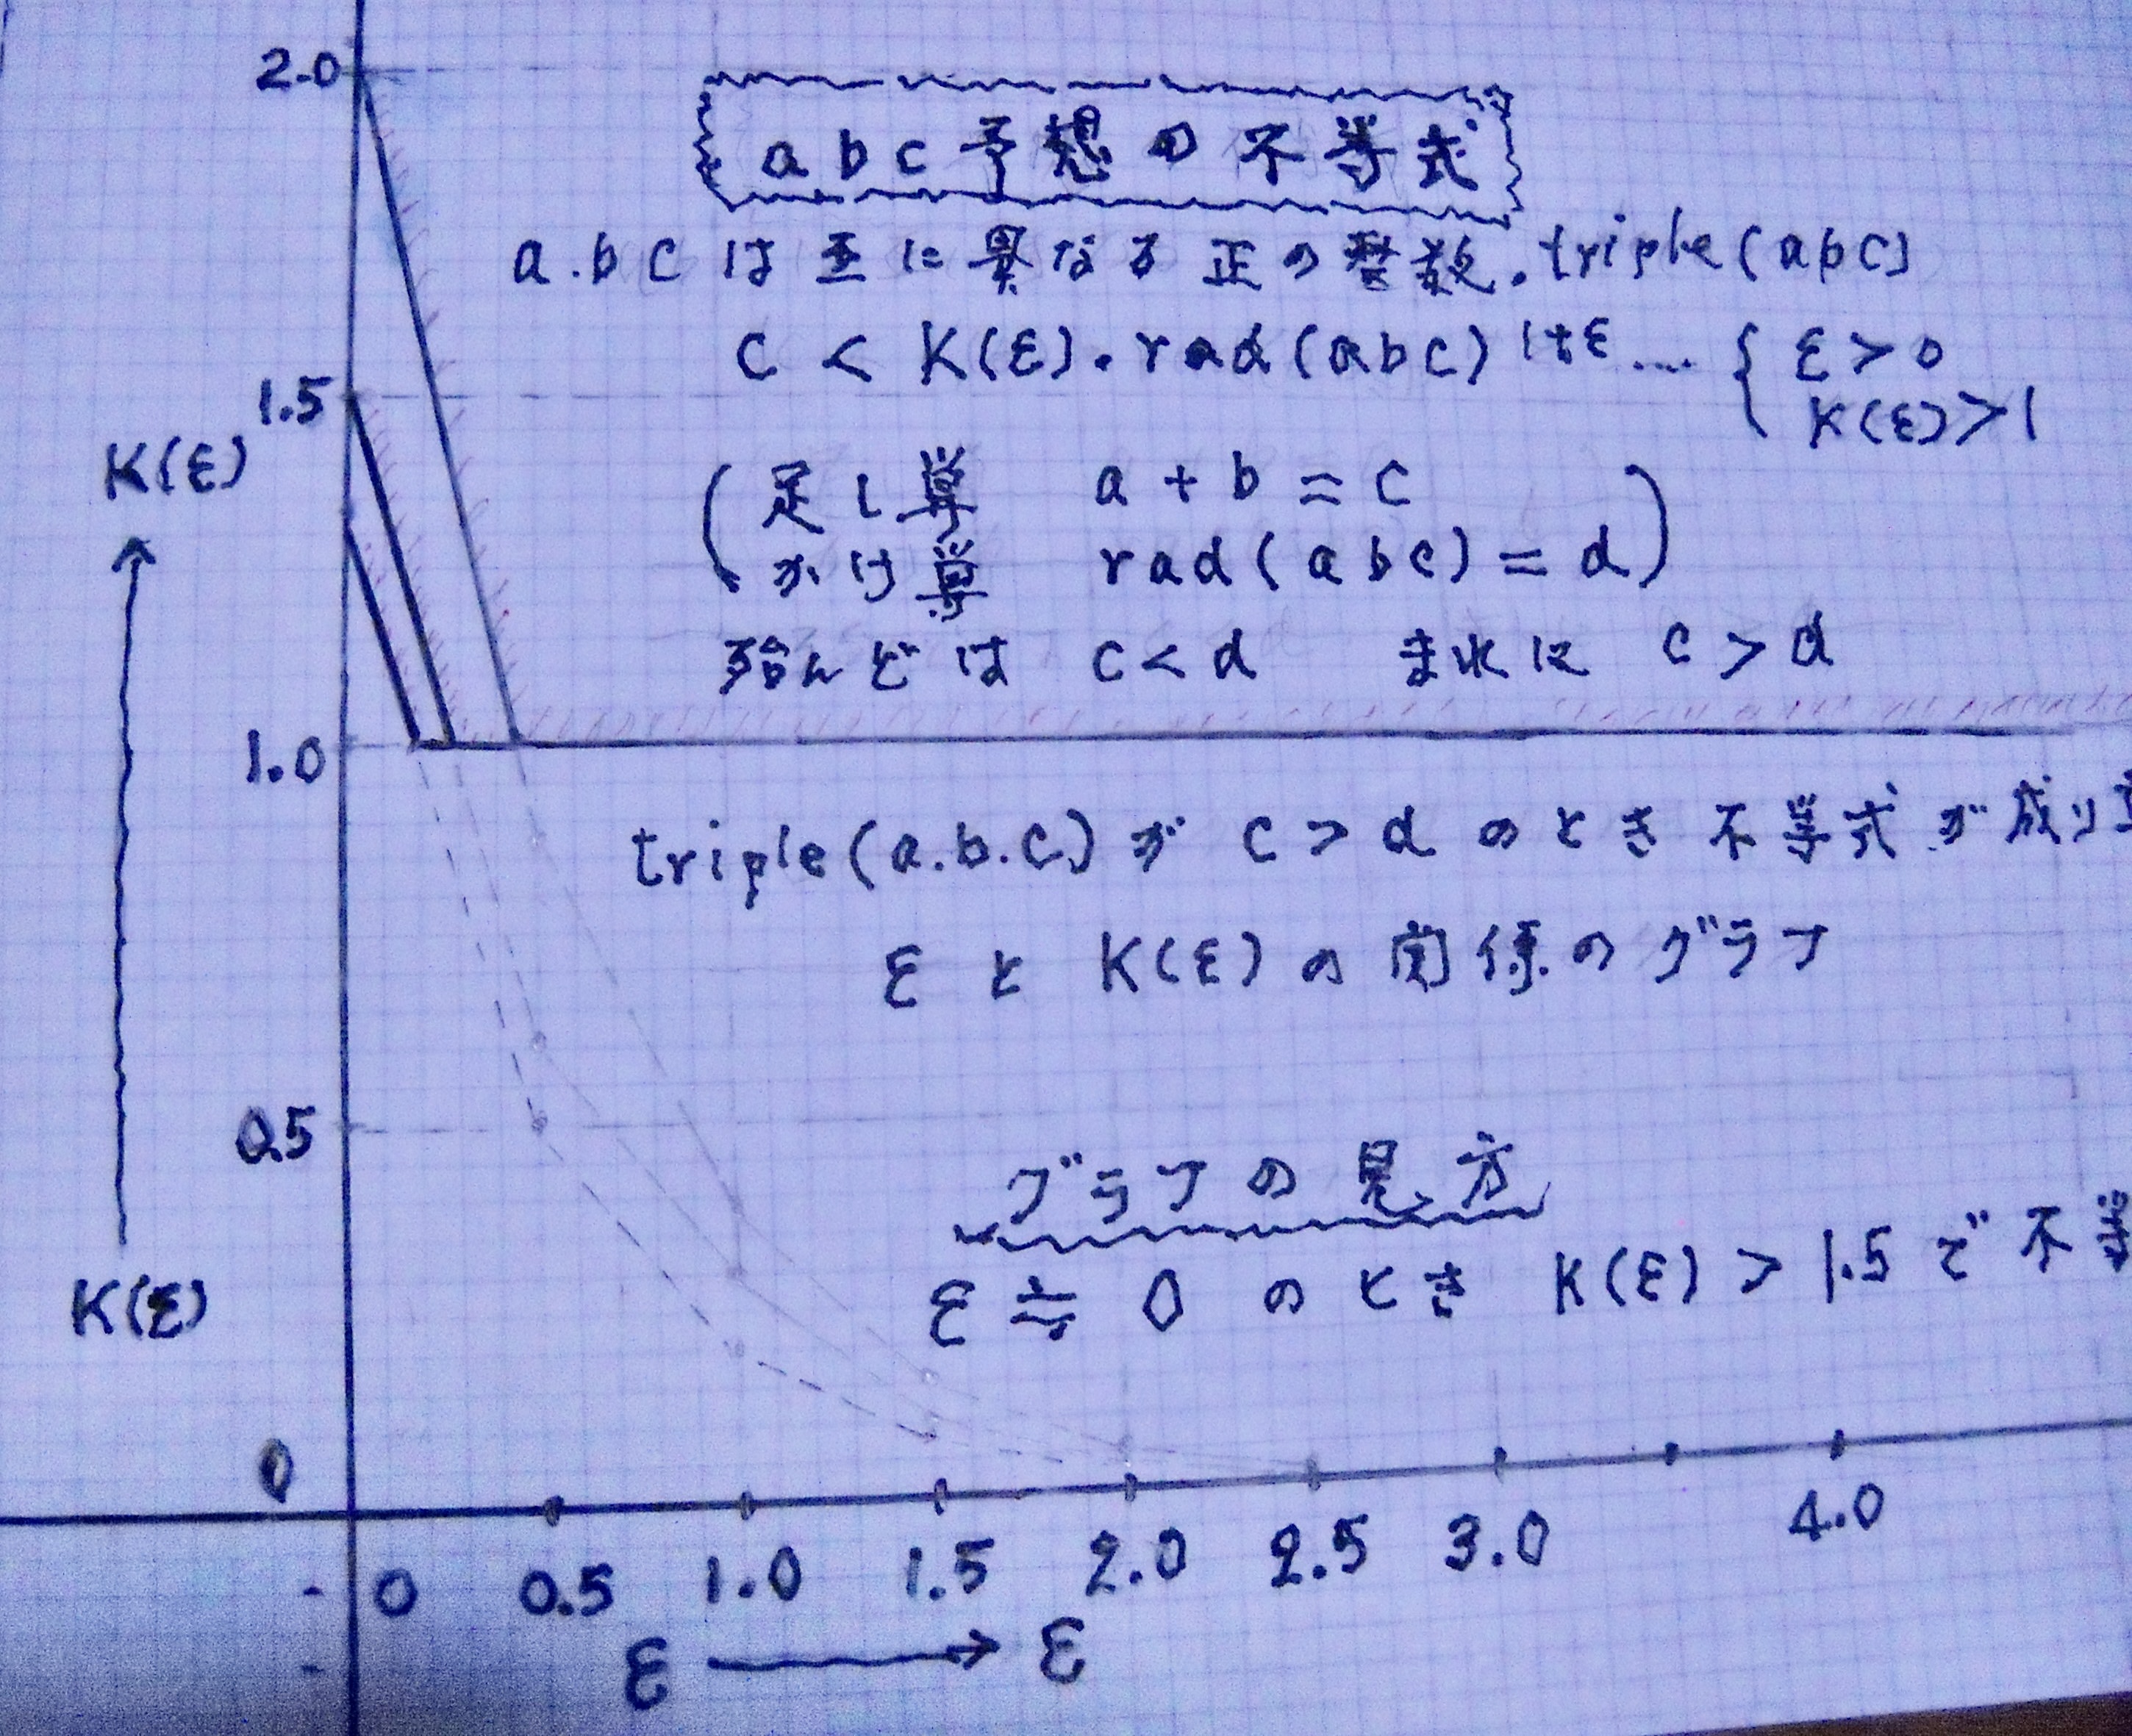 2.0
abc予想の不等式
a.bcは互に異なる正の整数.triple(abc)
c < K(ε).rad(abc)^1+ε .... { ε>0
K(ε)>1
1.5
K(ε)
(足し算 a+b=c
かけ算 rad(abc)=d)
殆んどは c<d まれに c>d
1.0
triple(a.b.c)が c>d のとき 不等式が成り立
εとK(ε)の関係のグラフ
0.5
グラフの見方
ε≒0のとき K(ε)>1.5で不等
K(ε)
0
0 0.5 1.0 1.5 2.0 2.5 3.0 4.0
ε → ε